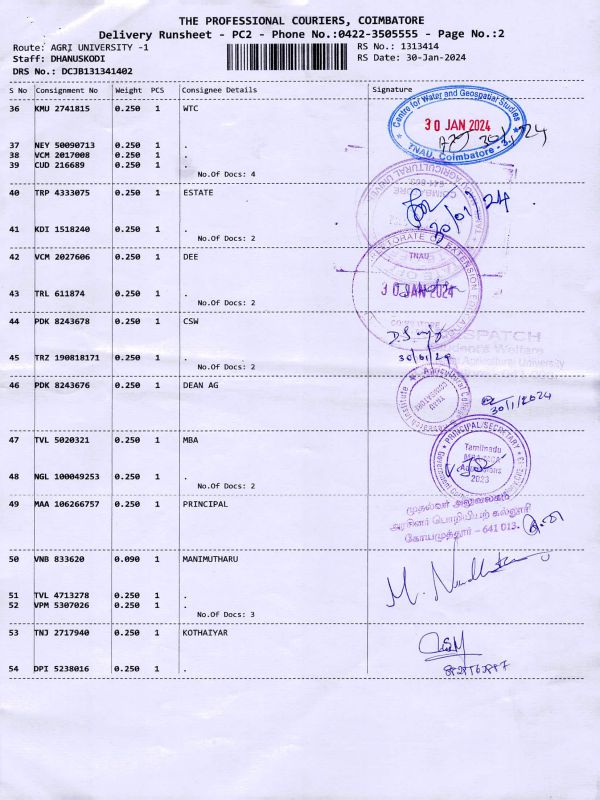 THE PROFESSIONAL COURIERS, COIMBATORE
Delivery Runsheet - PC2 - Phone No.:0422-3505555 - Page No.:2
Route: AGRI UNIVERSITY -1
RS No.: 1313414
Staff: DHANUSKODI
RS Date: 30-Jan-2024
DRS No.: DCJB131341402
S No Consignment No Weight PCS Consignee Details Signature
36 KMU 2741815 0.250 1 WTC
Centre for Water and Geospatial Studies
30 JAN 2024
TNAU, Coimbatore - 3.
37 NEY 50090713 0.250 1 .
38 VCM 2017008 0.250 1 .
39 CUD 216689 0.250 1 .
No.Of Docs: 4
40 TRP 4333075 0.250 1 ESTATE
30/01/24
41 KDI 1518240 0.250 1 .
No.Of Docs: 2
42 VCM 2027606 0.250 1 DEE
TNAU
43 TRL 611874 0.250 1 .
30 JAN 2024
No.Of Docs: 2
44 PDK 8243678 0.250 1 CSW
COIMBATORE
30/01/24
45 TRZ 190818171 0.250 1 .
No.Of Docs: 2
46 PDK 8243676 0.250 1 DEAN AG
TNAU
COIMBATORE
30/1/2024
47 TVL 5020321 0.250 1 MBA
PRINCIPAL/SECRETARY
Tamilnadu
Admissions
2023
48 NGL 100049253 0.250 1 .
No.Of Docs: 2
49 MAA 106266757 0.250 1 PRINCIPAL
முதல்வர் அலுவலகம்
அரசினர் பொறியியற் கல்லூரி
கோயமுத்தூர் – 641 013.
50 VNB 833620 0.090 1 MANIMUTHARU
51 TVL 4713278 0.250 1 .
52 VPM 5307026 0.250 1 .
No.Of Docs: 3
53 TNJ 2717940 0.250 1 KOTHAIYAR
54 DPI 5238016 0.250 1 .